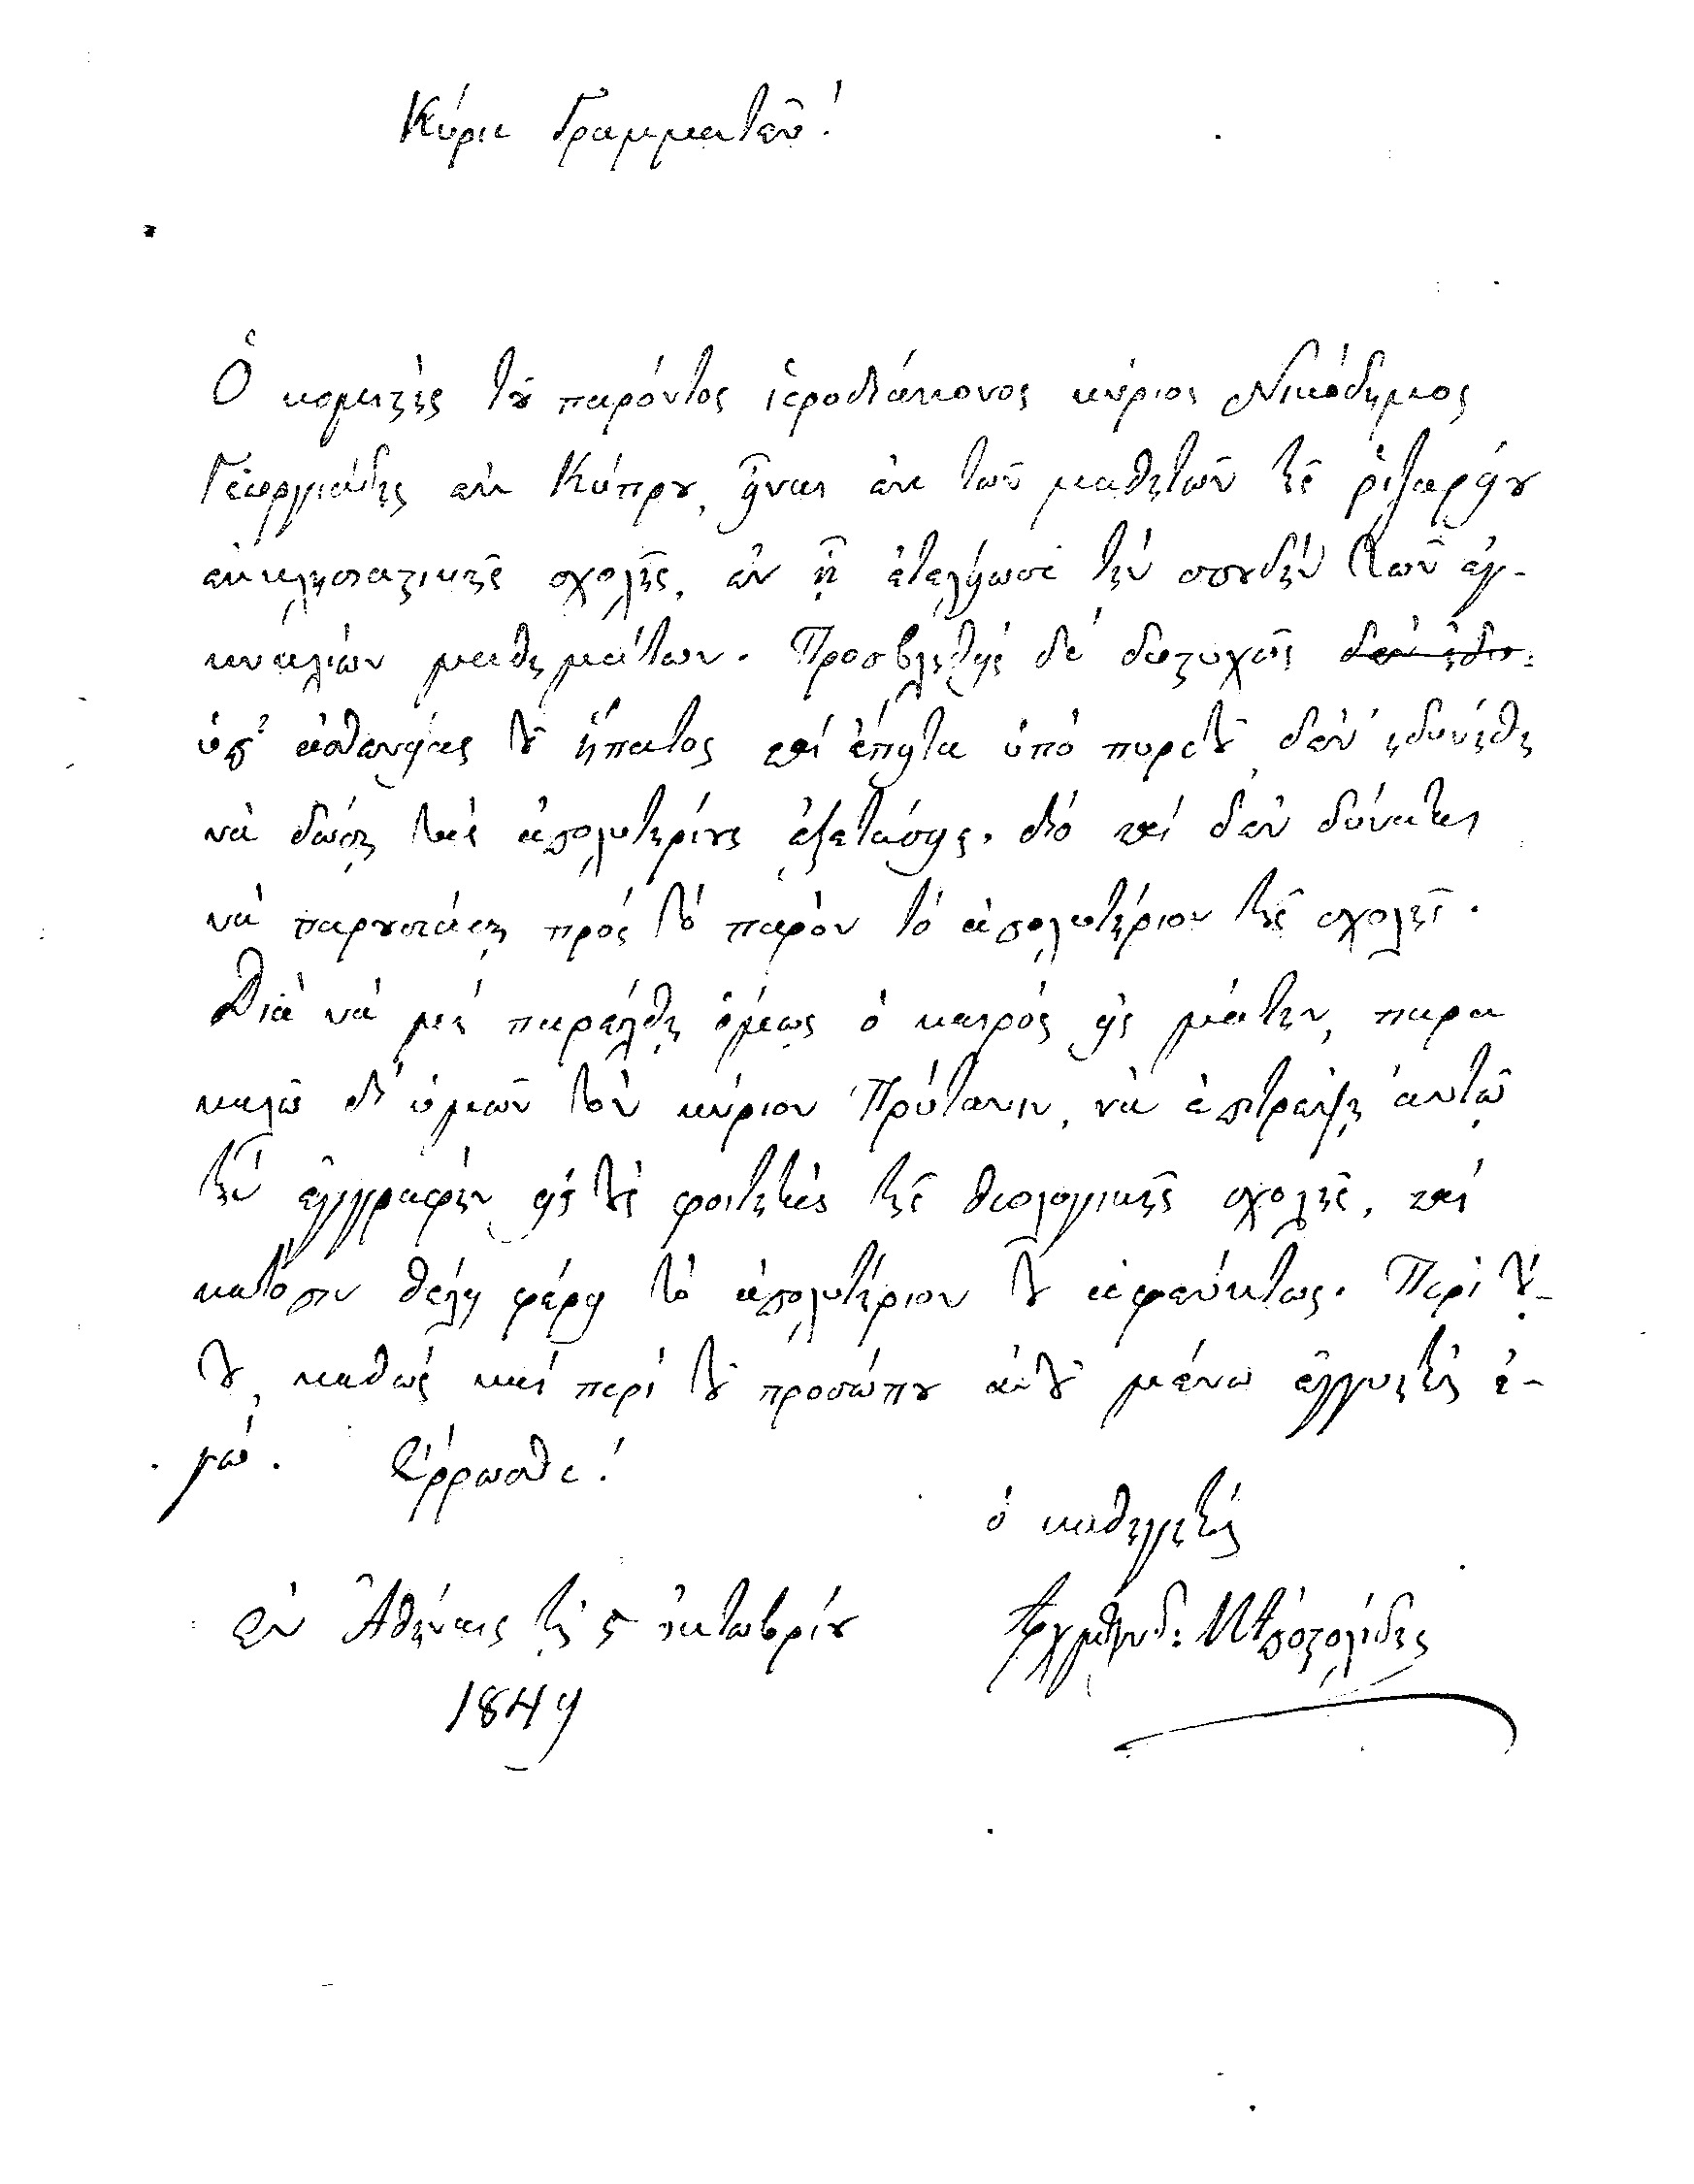 Κύριε Γραμματεῦ!
Ὁ κομιστὴς τοῦ παρόντος ἱεροδιάκονος κύριος Νικόδημος
Γεωργιάδης ἐκ Κύπρου, εἶναι ἐκ τῶν μαθητῶν τῆς ῥιζαρείου
ἐκκλησιαστικῆς σχολῆς, ἐν ᾗ ἐτελείωσε τὴν σπουδὴν τῶν ἐγ-
κυκλίων μαθημάτων. Προσβληθεὶς δὲ δυστυχῶς δὲν ἐδυ-
ὑπ' ἀσθενείας τοῦ ἥπατος καὶ ἔπειτα ὑπὸ πυρετοῦ δὲν ἐδυνήθη
νὰ δώσῃ τὰς ἀπολυτηρίους ἐξετάσεις. διὸ καὶ δὲν δύναται
νὰ παρουσιάσῃ πρὸς τὸ παρὸν τὸ ἀπολυτήριον τῆς σχολῆς.
Διὰ νὰ μὴ παρέλθῃ ὅμως ὁ καιρὸς εἰς μάτην, παρα
καλῶ δι' ὑμῶν τὸν κύριον Πρύτανιν, νὰ ἐπιτρέψῃ αὐτῷ
τὴν ἐγγραφὴν εἰς τοὺς φοιτητὰς τῆς θεολογικῆς σχολῆς, καὶ
κατόπιν θέλει φέρει τὸ ἀπολυτήριόν του ἀφεύκτως. Περὶ τού-
του, καθὼς καὶ περὶ τοῦ προσώπου αὐτοῦ μένω ἐγγυητὴς ἐ-
γώ. Ἔρρωσθε!
ὁ καθηγητὴς
Ἐν Ἀθήναις τῇ 5 ὀκτωβρίου
Ἀρχιμανδ: Μ Ἀποστολίδης
1849